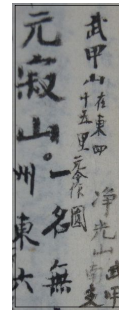 武甲山在東四
十五里
淨光山南支
元寂山。一名無
州東六